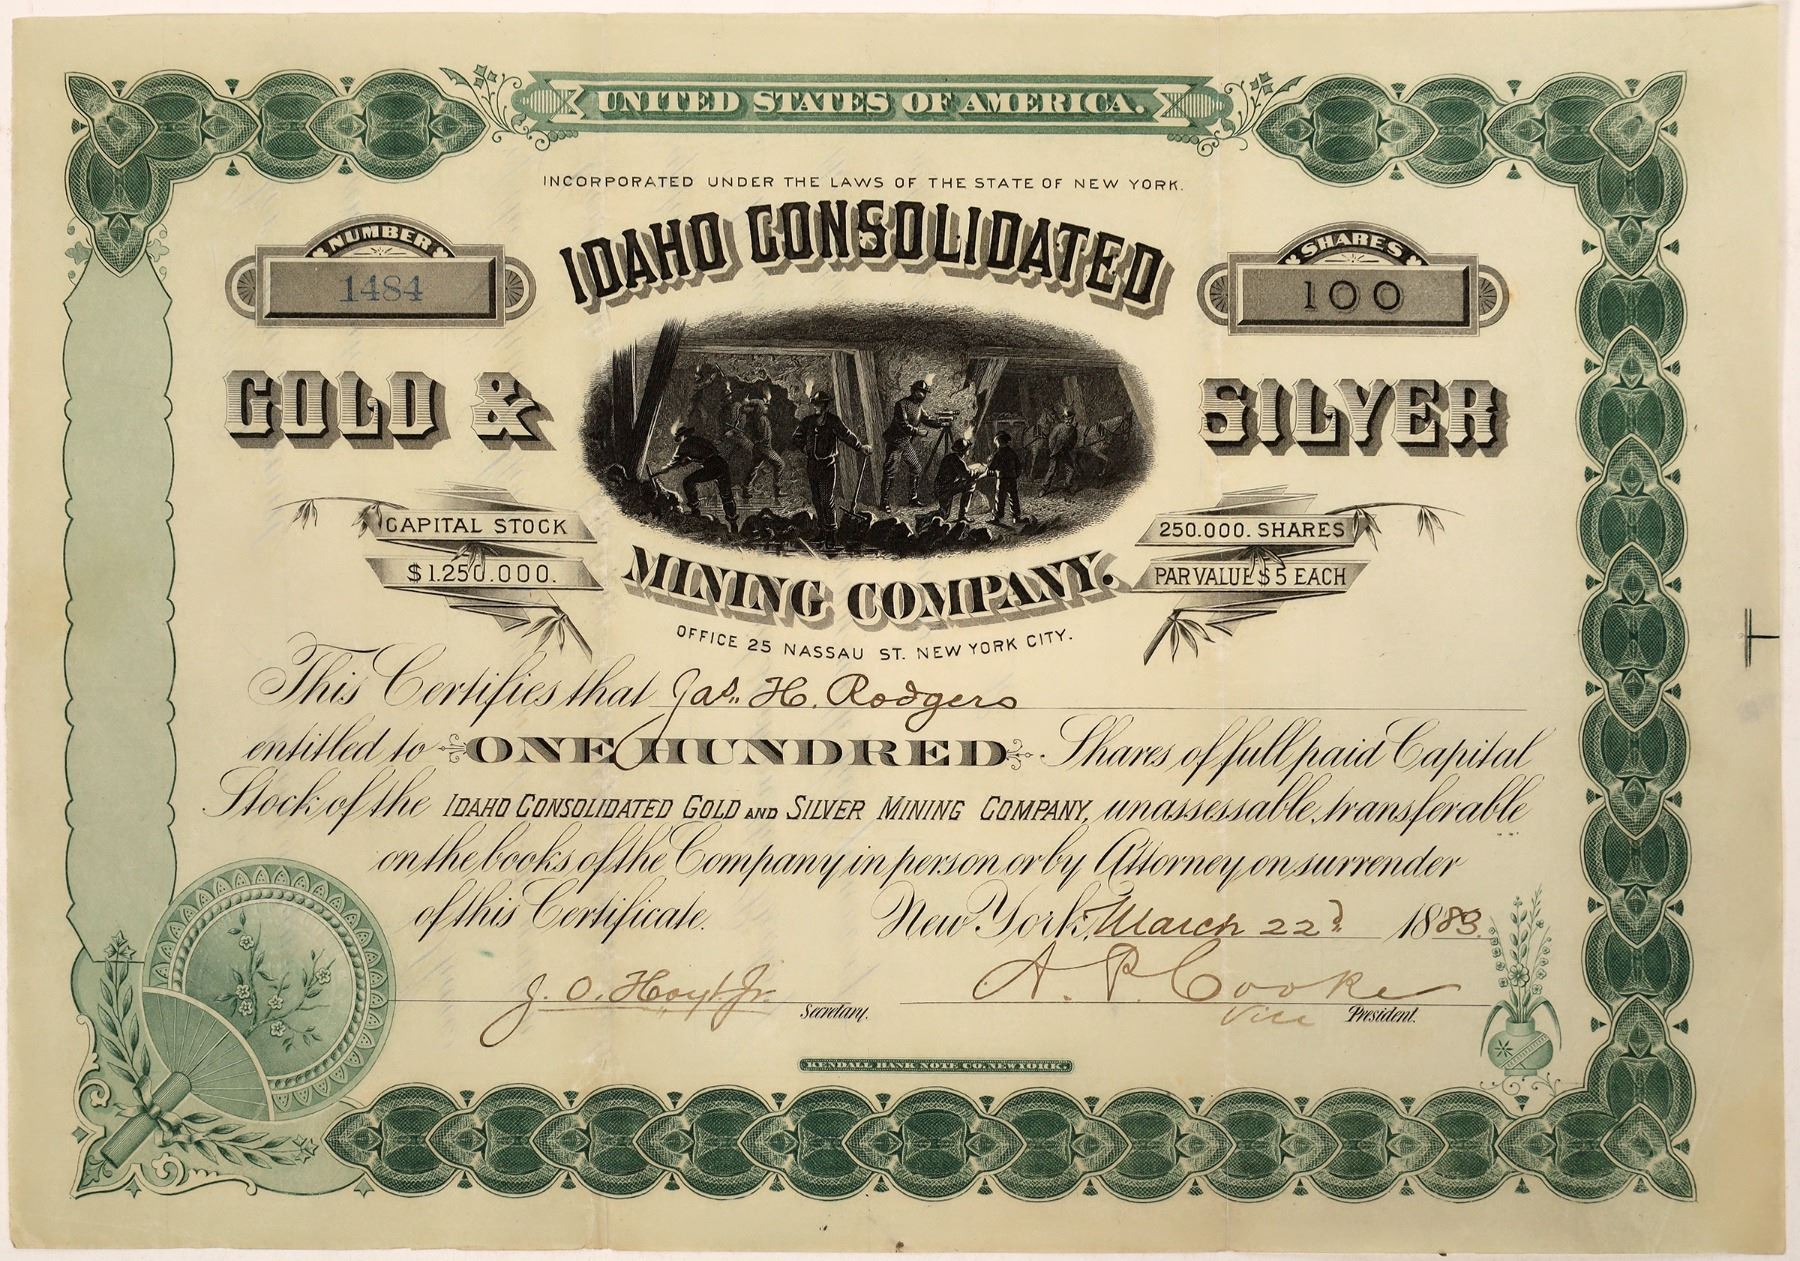 UNITED STATES OF AMERICA.
INCORPORATED UNDER THE LAWS OF THE STATE OF NEW YORK.
NUMBER
1484
IDAHO CONSOLIDATED
SHARES
100
GOLD & SILVER
CAPITAL STOCK
$1.250.000.
250.000. SHARES
PAR VALUE $5 EACH
MINING COMPANY.
OFFICE 25 NASSAU ST. NEW YORK CITY.
This Certifies that Jas. H. Rodgers
entitled to ONE HUNDRED Shares of full paid Capital
Stock of the IDAHO CONSOLIDATED GOLD AND SILVER MINING COMPANY, unassessable, transferable
on the books of the Company in person or by Attorney on surrender
of this Certificate.
New York, March 22d 1883.
J. O. Hoyt Jr. Secretary.
A. P. Cooke
Vice President.
KENDALL BANK NOTE CO. NEW YORK.